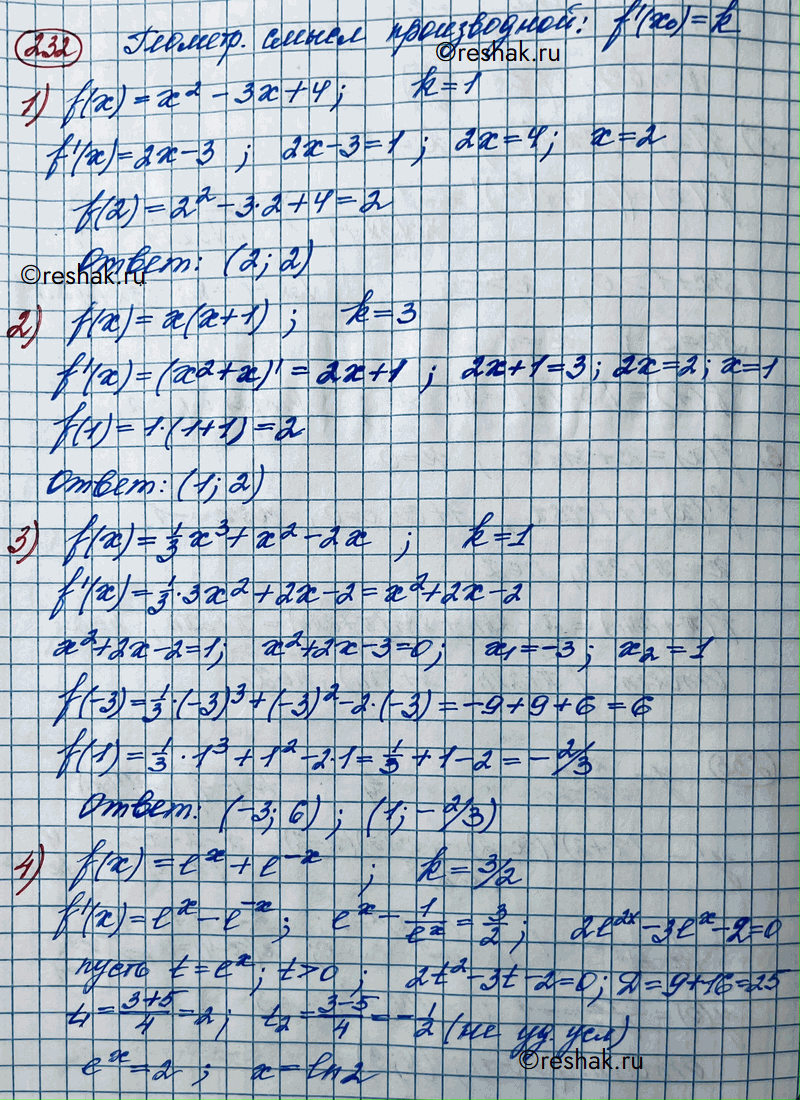 232 Геометр. смысл производной: f'(x₀)=k
©reshak.ru
1) f(x)=x²-3x+4; k=1
f'(x)=2x-3 ; 2x-3=1 ; 2x=4; x=2
f(2)=2²-3·2+4=2
Ответ: (2; 2)
©reshak.ru
2) f(x)=x(x+1) ; k=3
f'(x)=(x²+x)'=2x+1 ; 2x+1=3; 2x=2; x=1
f(1)=1·(1+1)=2
Ответ: (1; 2)
3) f(x)=1/3x³+x²-2x ; k=1
f'(x)=1/3·3x²+2x-2=x²+2x-2
x²+2x-2=1; x²+2x-3=0; x₁=-3; x₂=1
f(-3)=1/3·(-3)³+(-3)²-2·(-3)=-9+9+6=6
f(1)=1/3·1³+1²-2·1=1/3+1-2=-2/3
Ответ: (-3; 6) ; (1; -2/3)
4) f(x)=eˣ+e⁻ˣ ; k=3/2
f'(x)=eˣ-e⁻ˣ; eˣ-1/eˣ=3/2; 2e²ˣ-3eˣ-2=0
пусть t=eˣ; t>0 ; 2t²-3t-2=0; D=9+16=25
t₁=(3+5)/4=2; t₂=(3-5)/4=-1/2 (не уд. усл)
eˣ=2 ; x=ln2
©reshak.ru